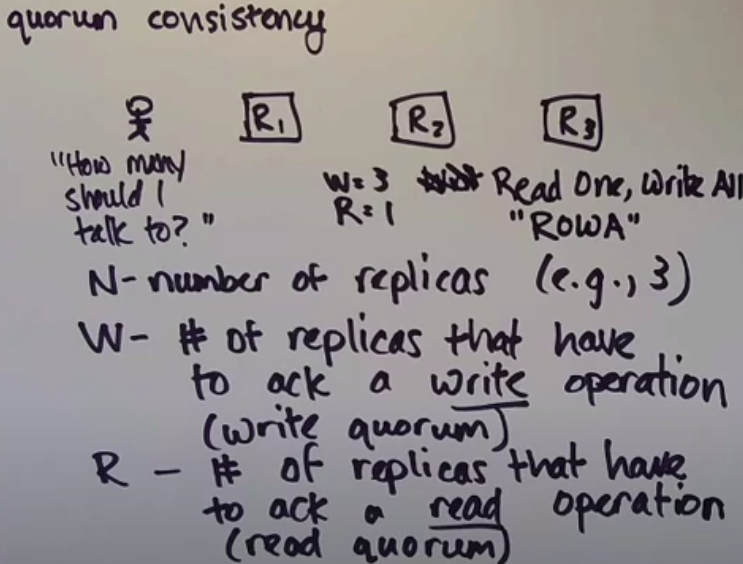 quorum consistency
R1 R2 R3
"How many
should I
talk to?"
W=3 Read One, Write All
R=1 "ROWA"
N- number of replicas (e.g., 3)
W- # of replicas that have
to ack a write operation
(write quorum)
R - # of replicas that have
to ack a read operation
(read quorum)